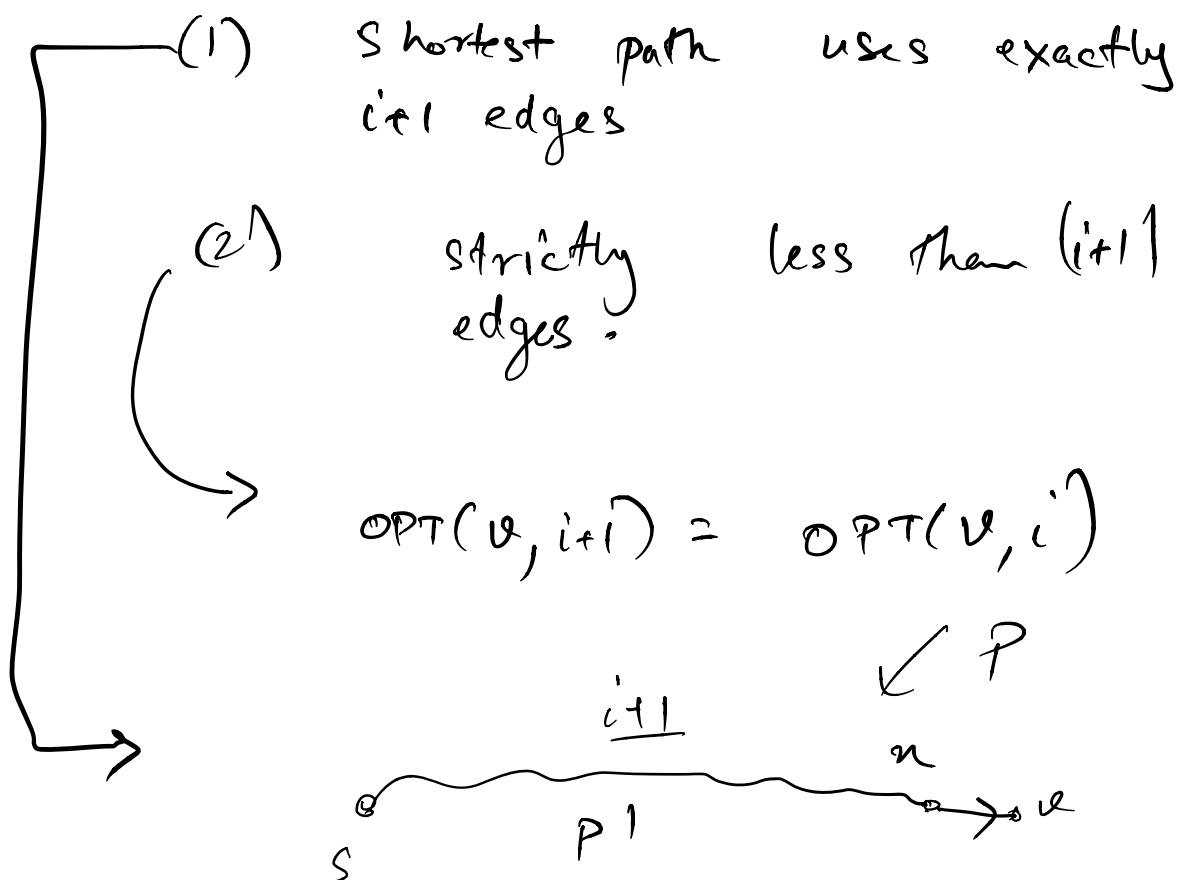 (1) Shortest path uses exactly
i+1 edges
(2) strictly less than (i+1)
edges.
OPT(v, i+1) = OPT(v, i)
P
i+1
u
s P' v